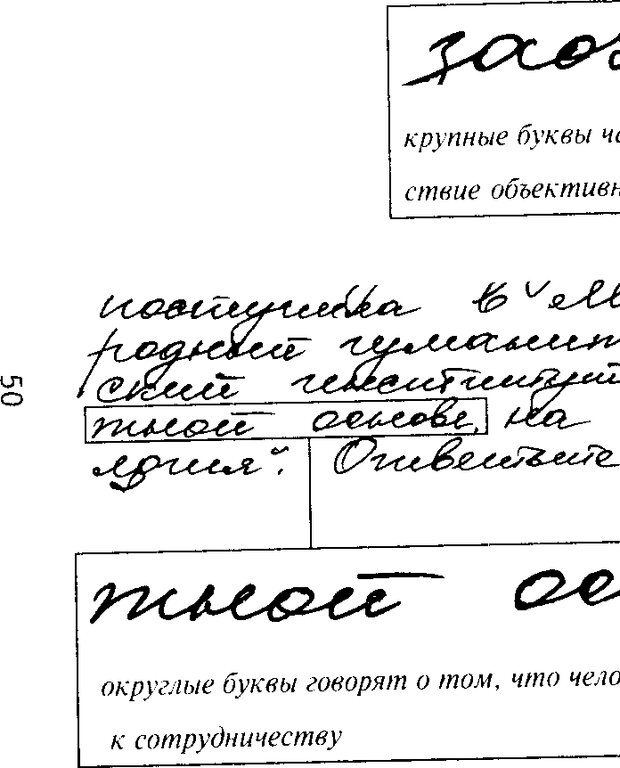 заоч
крупные буквы ча
ствие объективн
поступила в "М
родный гуманит
ский институт
тной основе, на
лдия". Ответьте
50
тной ос
округлые буквы говорят о том, что чело
к сотрудничеству